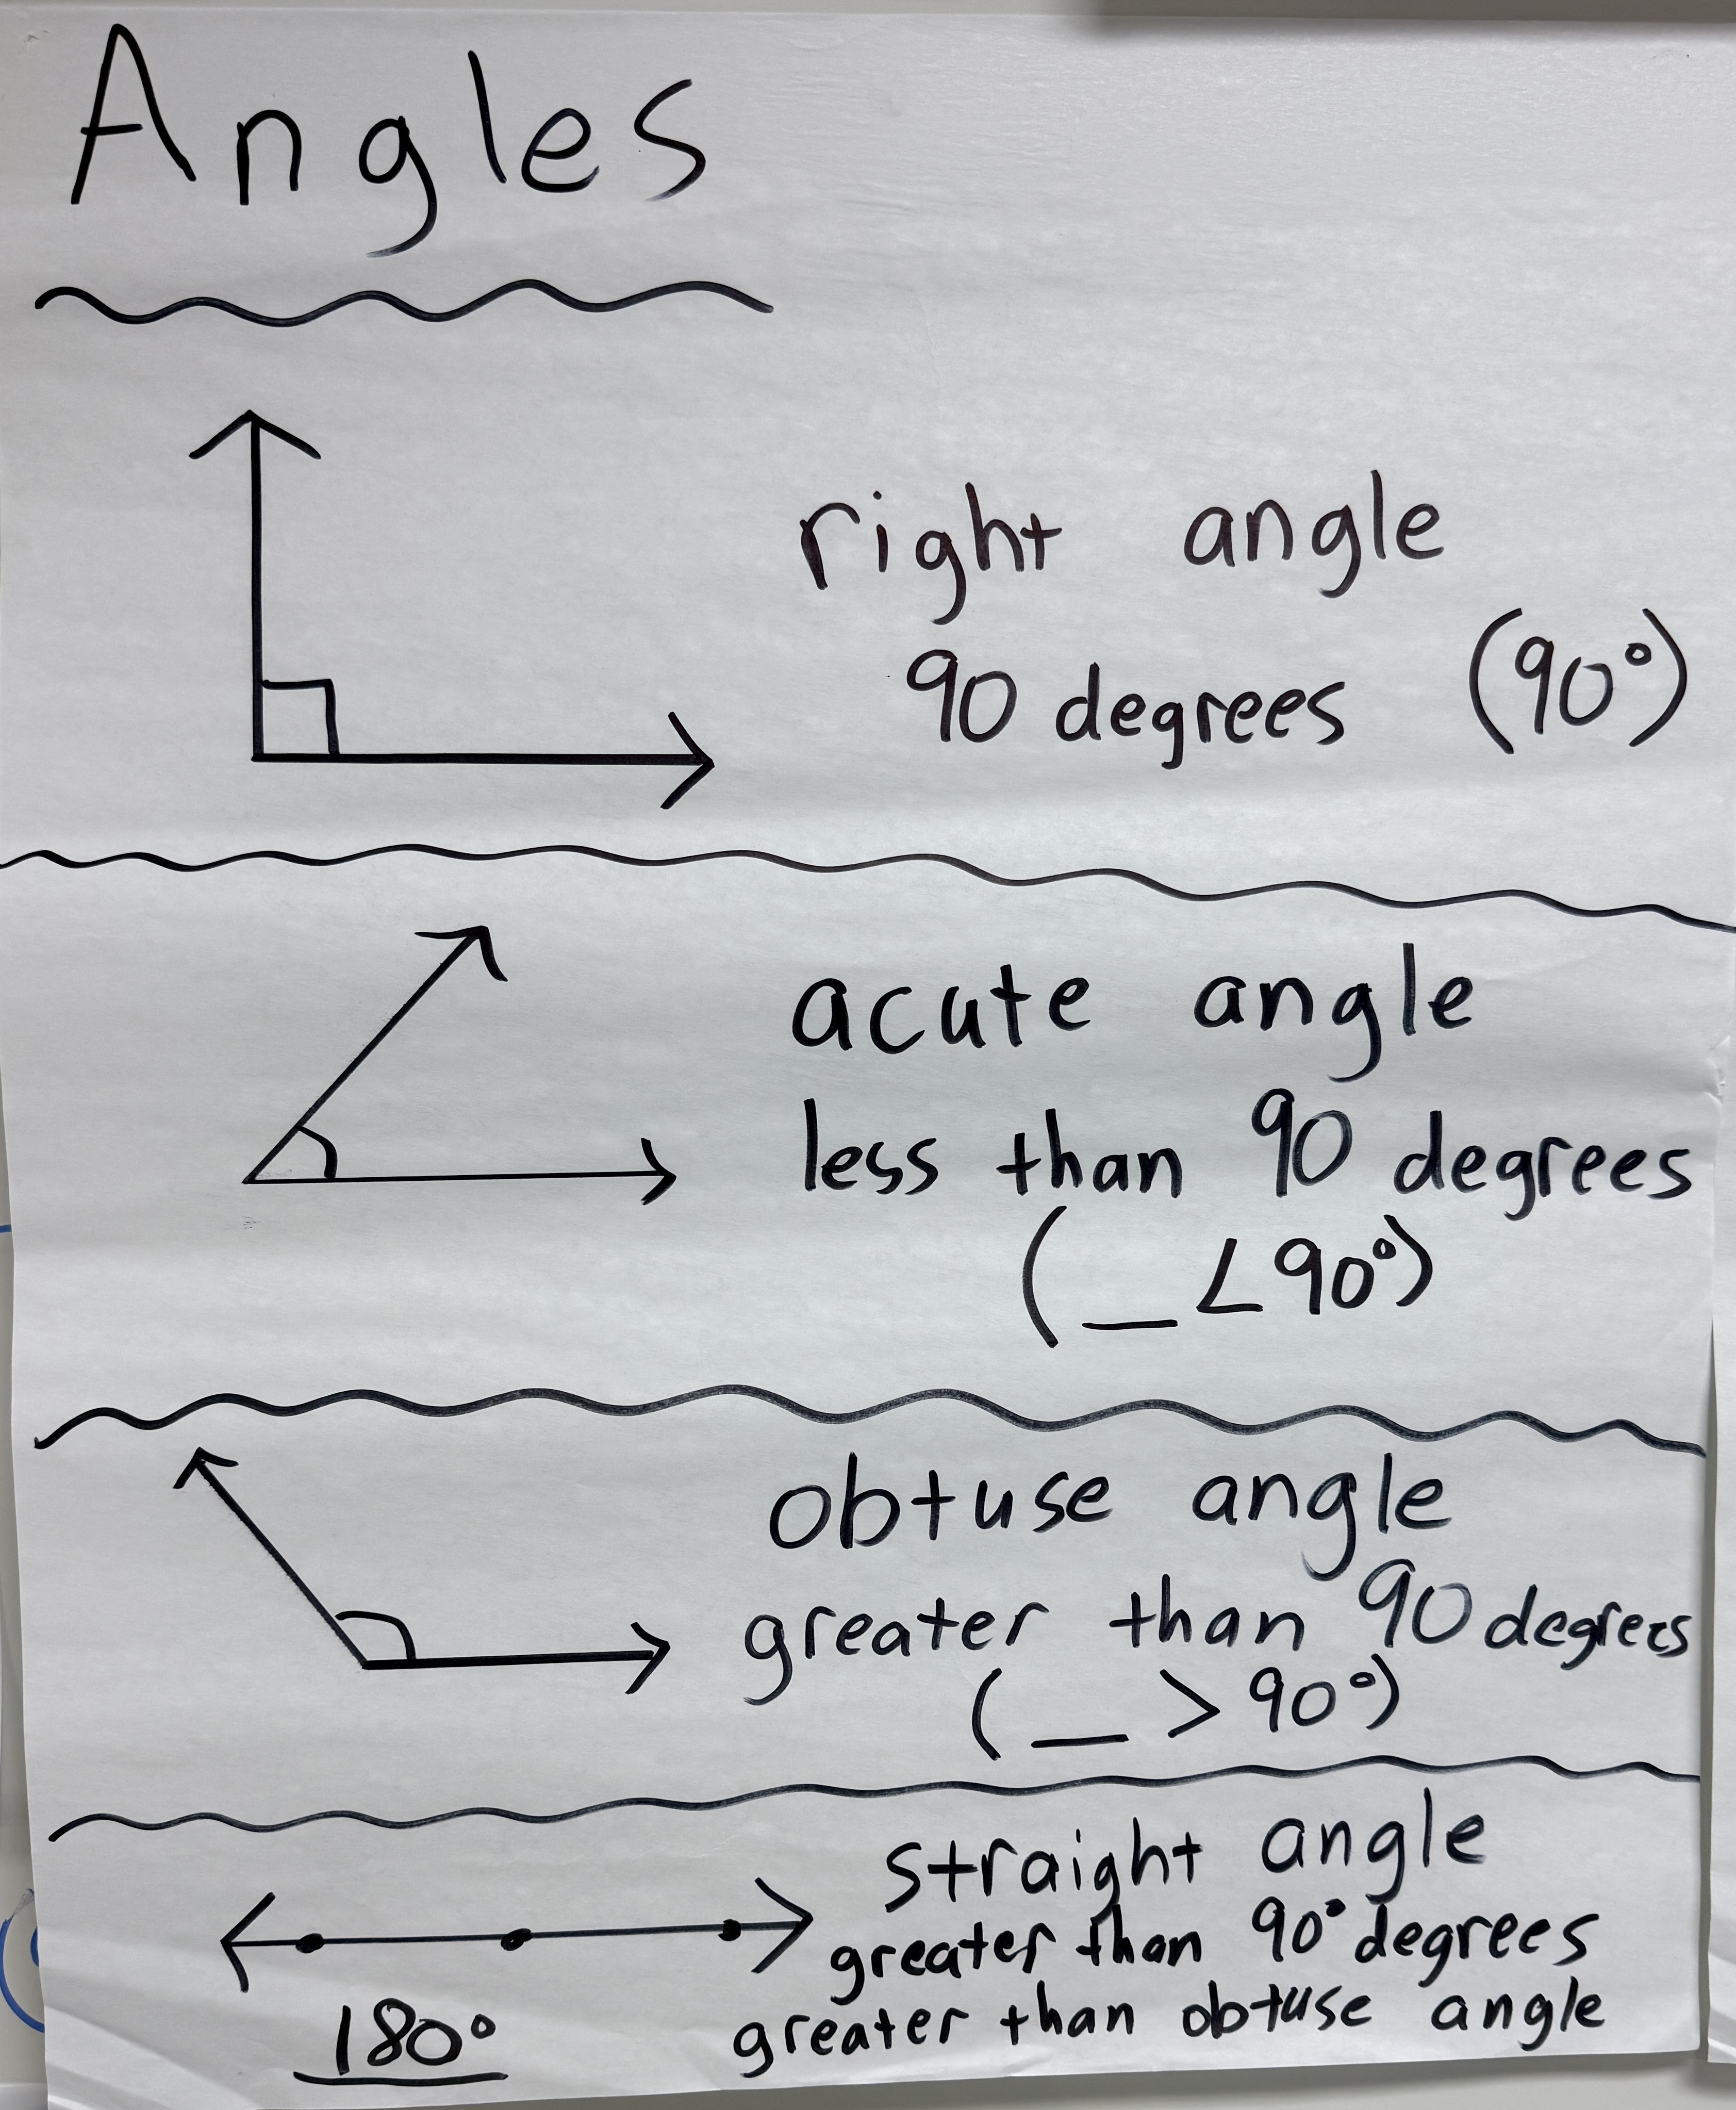 Angles
right angle
90 degrees (90°)
acute angle
less than 90 degrees
(_ < 90°)
obtuse angle
greater than 90 degrees
(_ > 90°)
straight angle
greater than 90° degrees
greater than obtuse angle
180°